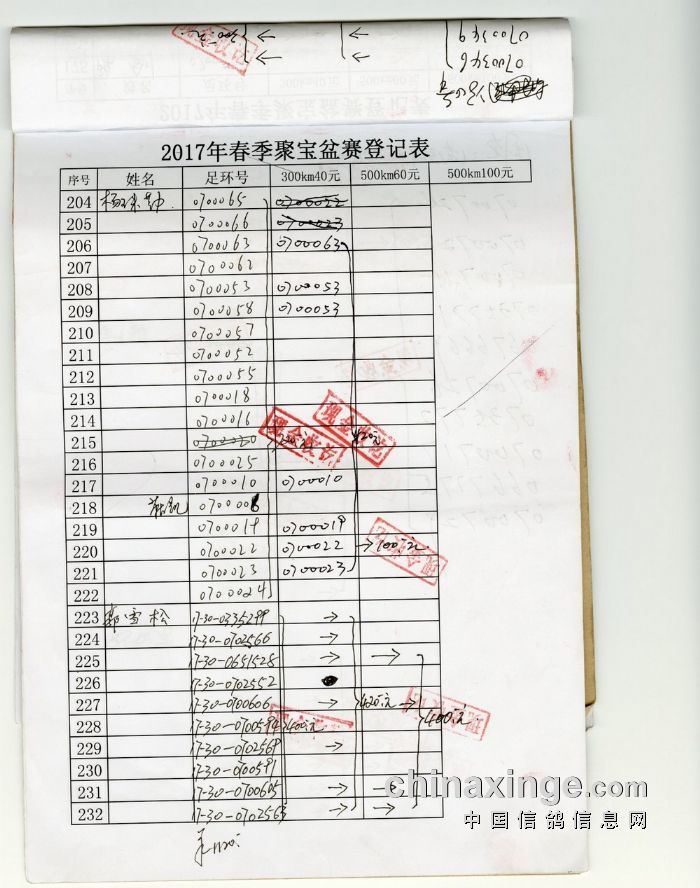 0700346
0700346
2017年春季聚宝盆赛登记表
序号 姓名 足环号 300km40元 500km60元 500km100元
204 0700065 0700022
205 0700066 0700023
206 0700063 0700063
207 0700062
208 0700053 0700053
209 0700058 0700053
210 0700057
211 0700052
212 0700055
213 0700018
214 0700016
现金收讫
215 0700020 720元 420元
现金收讫
216 0700025
217 0700010 0700010
218
219 0700019 0700019
220 0700022 0700022 → 100元
现金收讫
221 0700023 0700023
222 0700024
223 郭雪松 17-30-0335299 →
224 17-30-0702566 →
225 17-30-0651528 → →
226 17-30-0702552
227 17-30-0700606 → 420元 →
228 17-30-0700594 400元 400元
229 17-30-0702569 →
230 17-30-0700591
231 17-30-0700605 → →
232 17-30-0702563 → →
chinaxinge.com
中国信鸽信息网